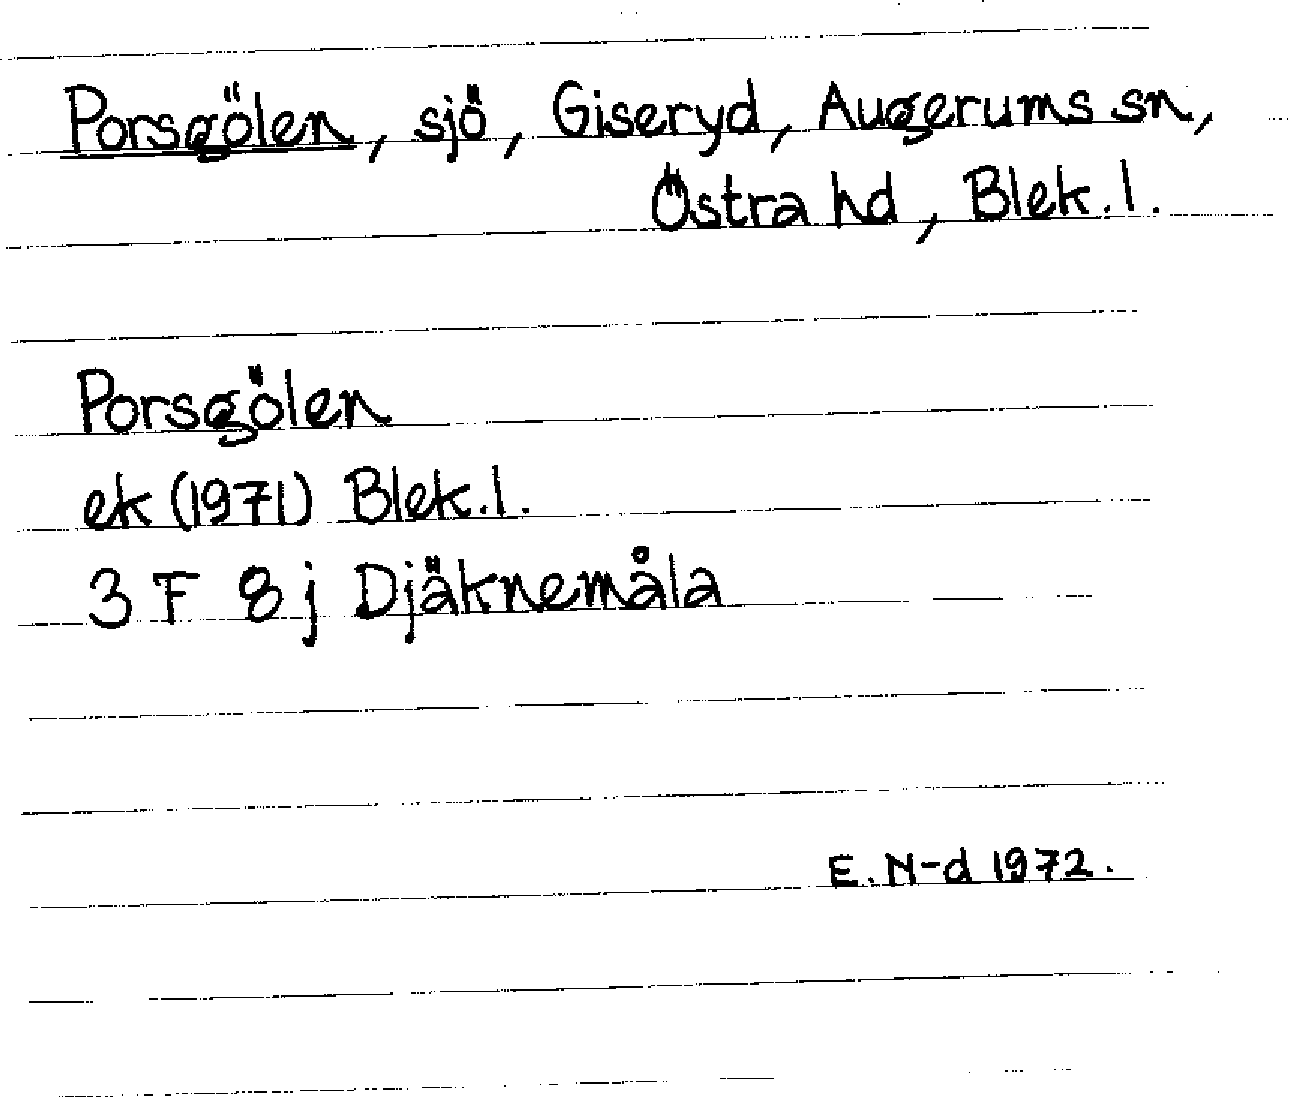 Porsgölen, sjö, Giseryd, Augerums sn,
Östra hd, Blek.l.
Porsgölen
ek (1971) Blek.l.
3 F 8 j Djäknemåla
E. N-d 1972.